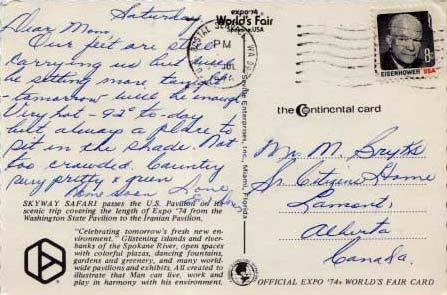 Saturday
Dear Mom,
Our feet are still
carrying us but will
be sitting more tonight
- tomorrow will be enough
Very hot - 92° to-day
but always a place to
sit in the shade. Not
too crowded. Country
very pretty & green
More soon Love
SKYWAY SAFARI passes the U.S. Pavilion on its
scenic trip covering the length of Expo '74 from the
Washington State Pavilion to the Iranian Pavilion.
"Celebrating tomorrow's fresh new
environment." Glistening islands and river-
banks of the Spokane River, open spaces
with colorful plazas, dancing fountains,
gardens and greenery, and many world-
wide pavilions and exhibits. All created to
illustrate that Man can live, work and
play in harmony with his environment.
expo '74
World's Fair
Spokane, USA
POSTAL SERVICE WA
PM
JUL
EISENHOWER USA
8c
the Continental card
Enterprises, Inc., Miami, Florida
M.
Sr. Citizens Home
Lamont,
Alberta
Canada.
OFFICIAL EXPO '74 WORLD'S FAIR CARD